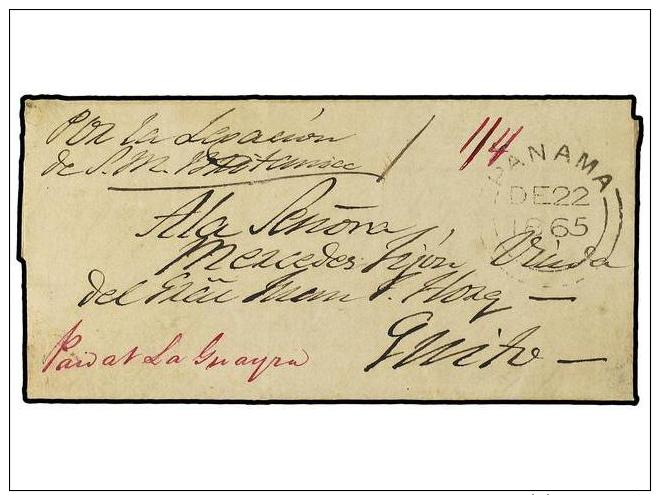 Por la Legación
de S. M. Británica
1/4
PANAMA
DE 22
1865
A la Señora
Mercedes Jijón Viuda
del
Quito
Paid at La Guayra